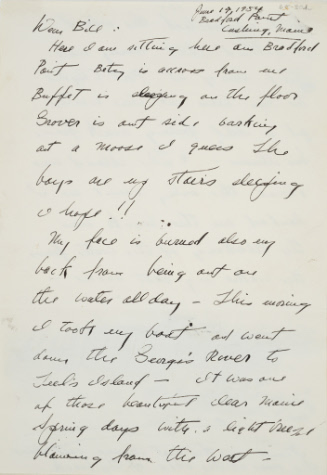 June 19, 1954
Bradford Point
Cushing, Maine
Dear Bill:
Here I am sitting here on Bradford
Point Betsy is across from me
Buffet is sleeping on the floor
Grover is out side barking
at a moose I guess The
boys are up stairs sleeping
I hope!!
My face is burned also my
back from being out on
the water all day – This morning
I took my boat and went
down the Georges River to
Teels Island – it was one
of those beautiful clear Maine
Spring days with a light breeze
blowing from the West –